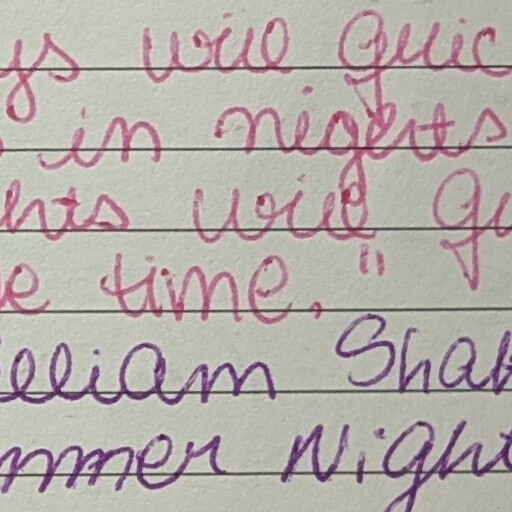 ys will quic
in nights
hts will qu
e time."
illiam Shak
mmer Night